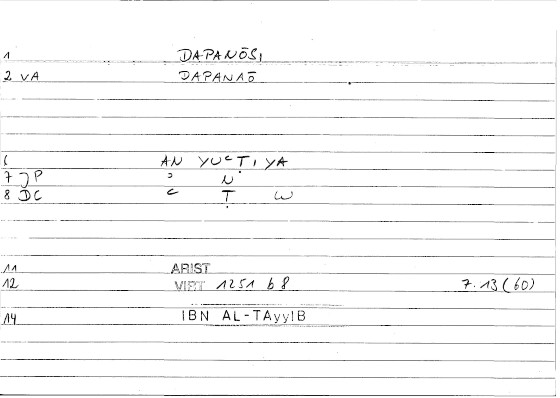 1 DAPANŌSI
2 VA DAPANAŌ
6 AN YUʿṬIYA
7 JP ʾ N
8 DC ʿ Ṭ W
11 ARIST
12 VIRT 1251 b 8 7.13 (60)
14 IBN AL-TAyyIB